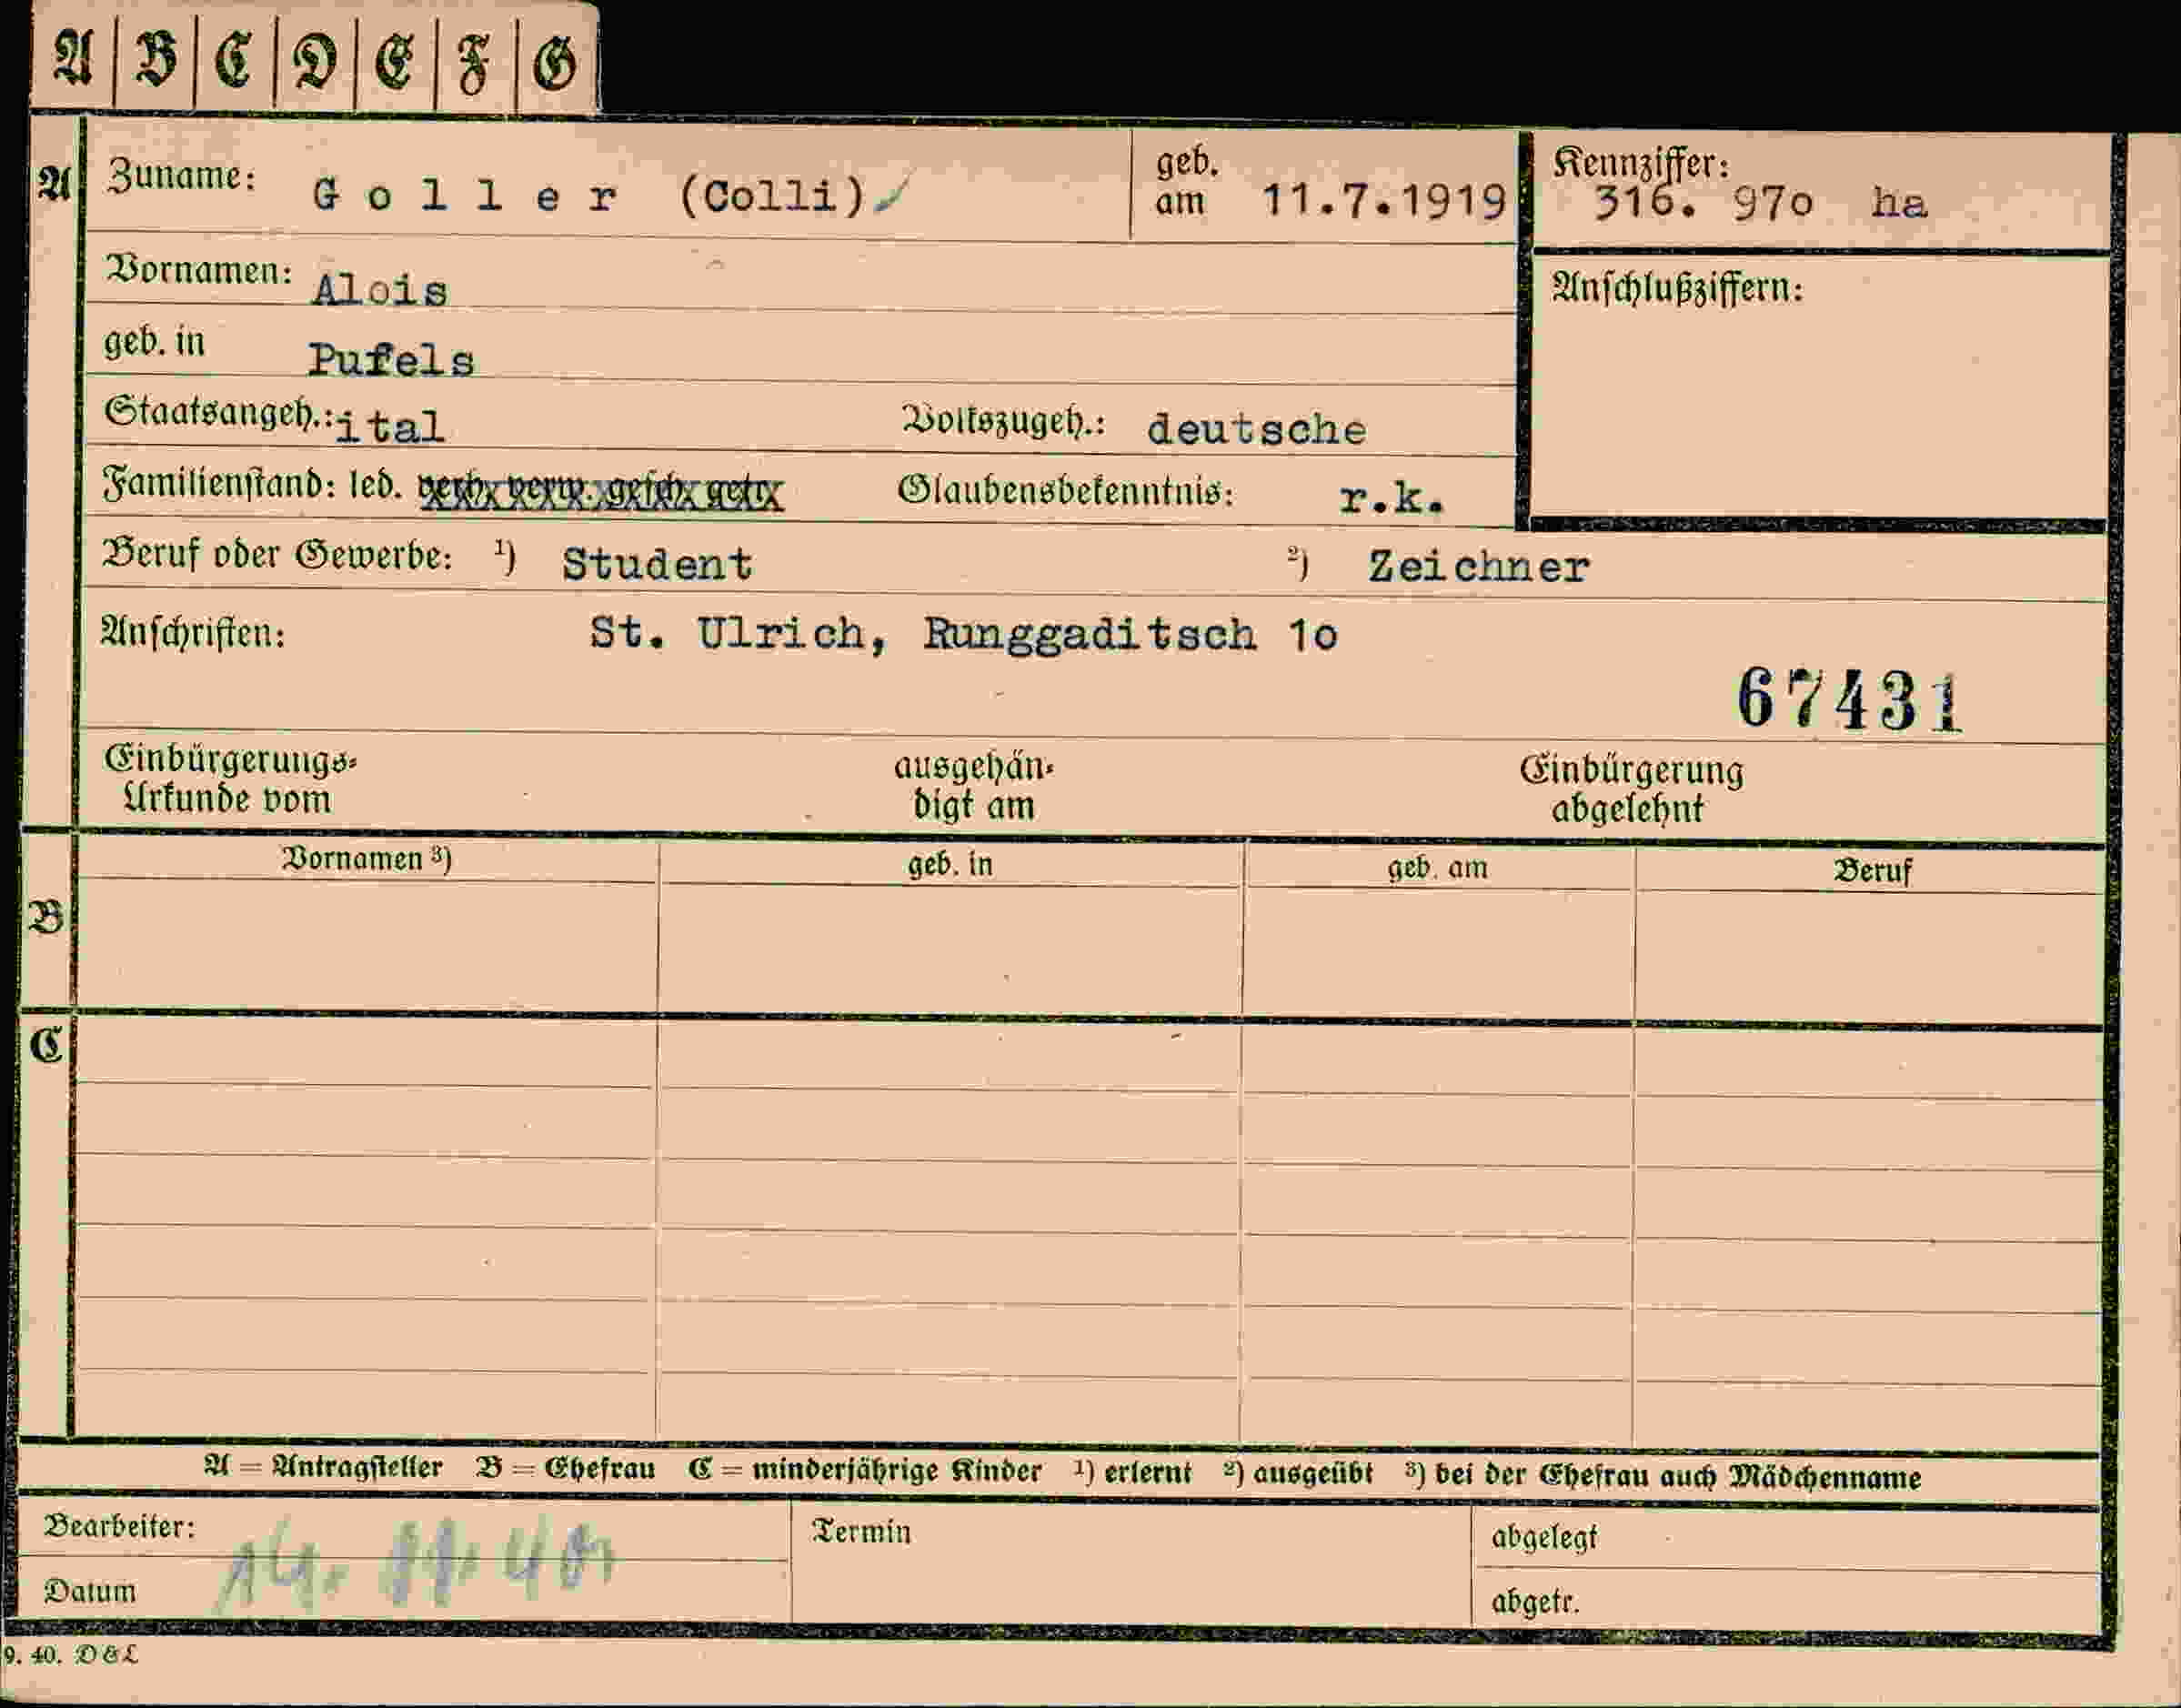 A B C D E F G
A Zuname: Goller (Colli) geb. am 11.7.1919 Kennziffer: 316. 97o ha
Vornamen: Alois Anschlußziffern:
geb. in Pufels
Staatsangeh.: ital Volkszugeh.: deutsche
Familienstand: led. verh. verw. gesch. getr. Glaubensbekenntnis: r.k.
Beruf oder Gewerbe: ¹) Student ²) Zeichner
Anschriften: St. Ulrich, Runggaditsch 1o
67431
Einbürgerungs- ausgehän- Einbürgerung
Urkunde vom digt am abgelehnt
Vornamen ³) geb. in geb. am Beruf
B
C
A = Antragsteller B = Ehefrau C = minderjährige Kinder ¹) erlernt ²) ausgeübt ³) bei der Ehefrau auch Mädchenname
Bearbeiter: Termin abgelegt
14. 11. 40
Datum abgetr.
9. 40. D & L